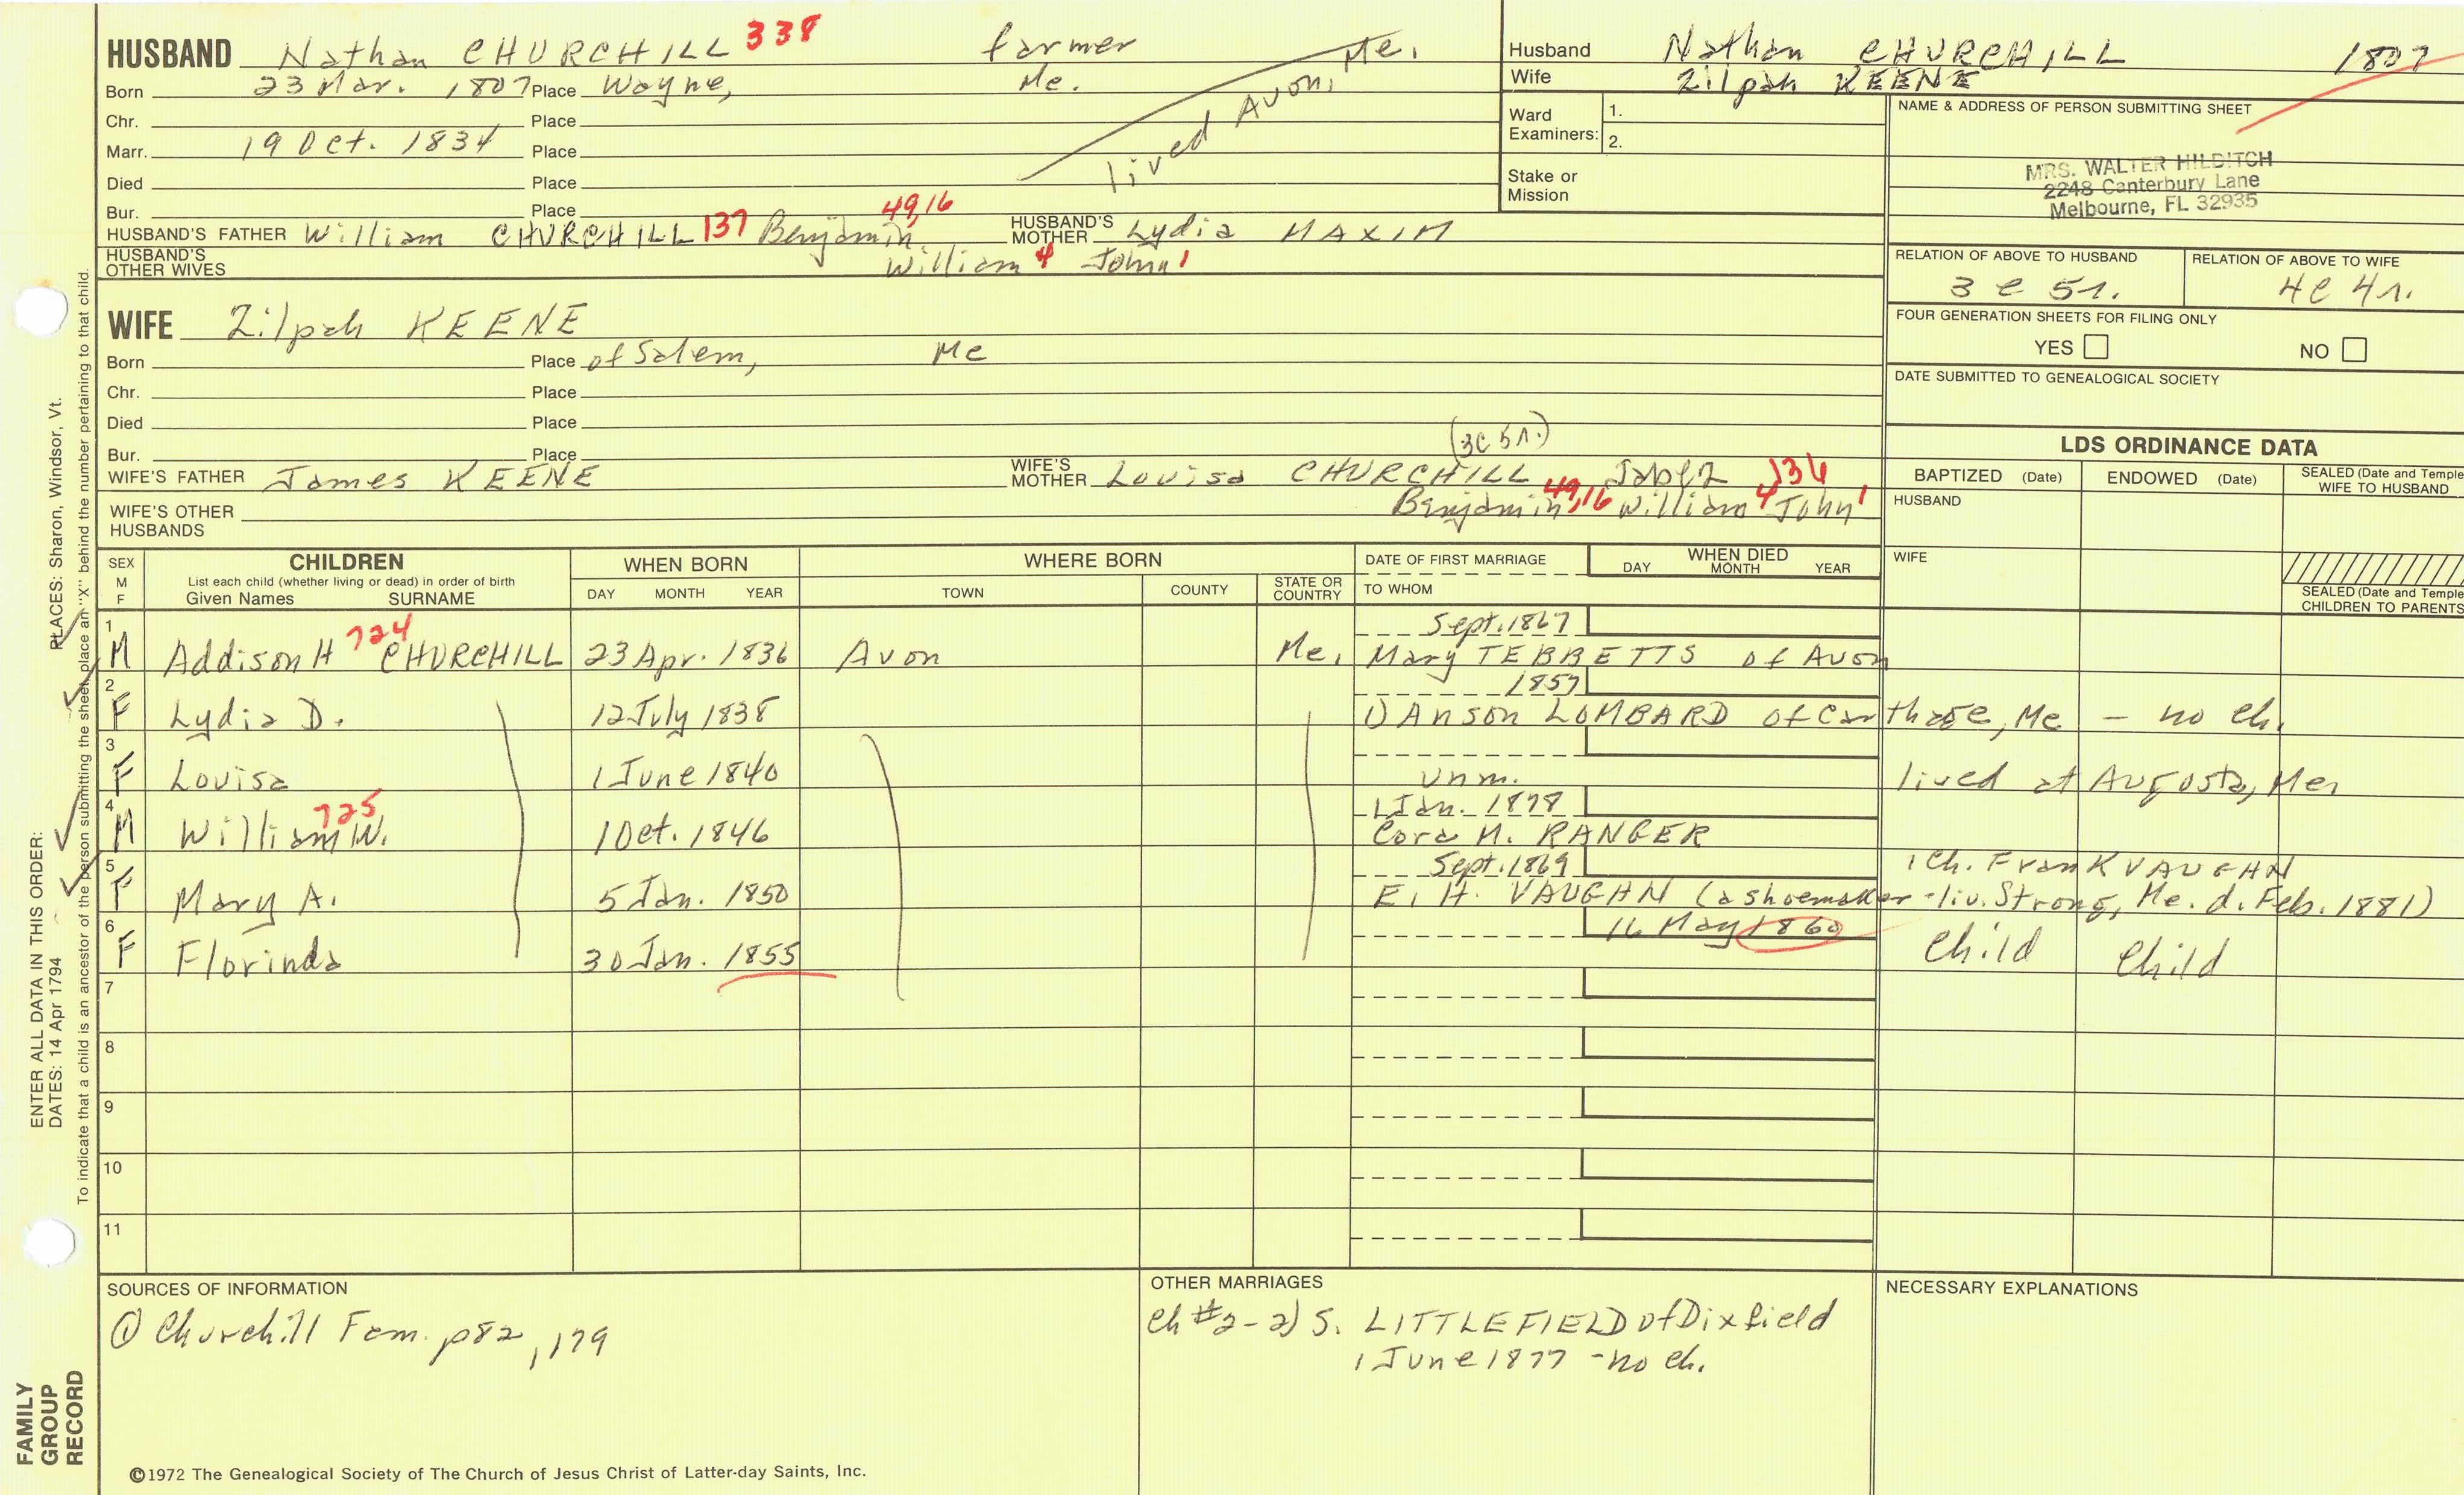 HUSBAND Nathan CHURCHILL 338 farmer
Born 23 Mar. 1807 Place Wayne, Me.
Chr. Place
Marr. 19 Oct. 1834 Place
Died Place
Bur. Place
lived Avon, Me.
HUSBAND'S FATHER William CHURCHILL 137 Benjamin 49,16 HUSBAND'S MOTHER Lydia MAXIM
William 4 John 1
HUSBAND'S OTHER WIVES
Husband Nathan CHURCHILL 1807
Wife Zilpah KEENE
Ward Examiners: 1.
2.
Stake or Mission
NAME & ADDRESS OF PERSON SUBMITTING SHEET
MRS. WALTER HILDITCH
2248 Canterbury Lane
Melbourne, FL 32935
RELATION OF ABOVE TO HUSBAND RELATION OF ABOVE TO WIFE
3 c 5r. 4c 4r.
FOUR GENERATION SHEETS FOR FILING ONLY
YES NO
DATE SUBMITTED TO GENEALOGICAL SOCIETY
WIFE Zilpah KEENE
Born Place of Salem, Me
Chr. Place
Died Place
Bur. Place
(3c 5r.)
WIFE'S FATHER James KEENE WIFE'S MOTHER Louisa CHURCHILL, Jabez 136
Benjamin 49,16 William 4 John 1
WIFE'S OTHER HUSBANDS
LDS ORDINANCE DATA
BAPTIZED (Date) ENDOWED (Date) SEALED (Date and Temple) WIFE TO HUSBAND
HUSBAND
WIFE
SEALED (Date and Temple) CHILDREN TO PARENTS
SEX M F CHILDREN WHEN BORN WHERE BORN DATE OF FIRST MARRIAGE WHEN DIED
List each child (whether living or dead) in order of birth
Given Names SURNAME DAY MONTH YEAR TOWN COUNTY STATE OR COUNTRY TO WHOM DAY MONTH YEAR
Sept. 1867
1 M Addison H 724 CHURCHILL 23 Apr. 1836 Avon Me. Mary TEBBETTS of Avon
1857
2 F Lydia D. 12 July 1838 1) Anson LOMBARD of Carthage, Me - no ch.
3 F Louisa 1 June 1840 unm. lived at Augusta, Me.
1 Jan. 1878
4 M William W. 725 1 Oct. 1846 Cora M. RANGER
Sept. 1869 1 ch. Frank VAUGHN
5 F Mary A. 5 Jan. 1850 E. H. VAUGHN (a shoemaker - liv. Strong, Me. d. Feb. 1881)
16 May 1860
6 F Florinda 30 Jan. 1855 Child Child
7
8
9
10
11
SOURCES OF INFORMATION
① Churchill Fam. p82, 179
OTHER MARRIAGES
Ch #2 - 2) S. LITTLEFIELD of Dixfield
1 June 1877 - no ch.
NECESSARY EXPLANATIONS
©1972 The Genealogical Society of The Church of Jesus Christ of Latter-day Saints, Inc.
FAMILY GROUP RECORD
ENTER ALL DATA IN THIS ORDER:
DATES: 14 Apr 1794 PLACES: Sharon, Windsor, Vt.
To indicate that a child is an ancestor of the person submitting the sheet, place an "X" behind the number pertaining to that child.